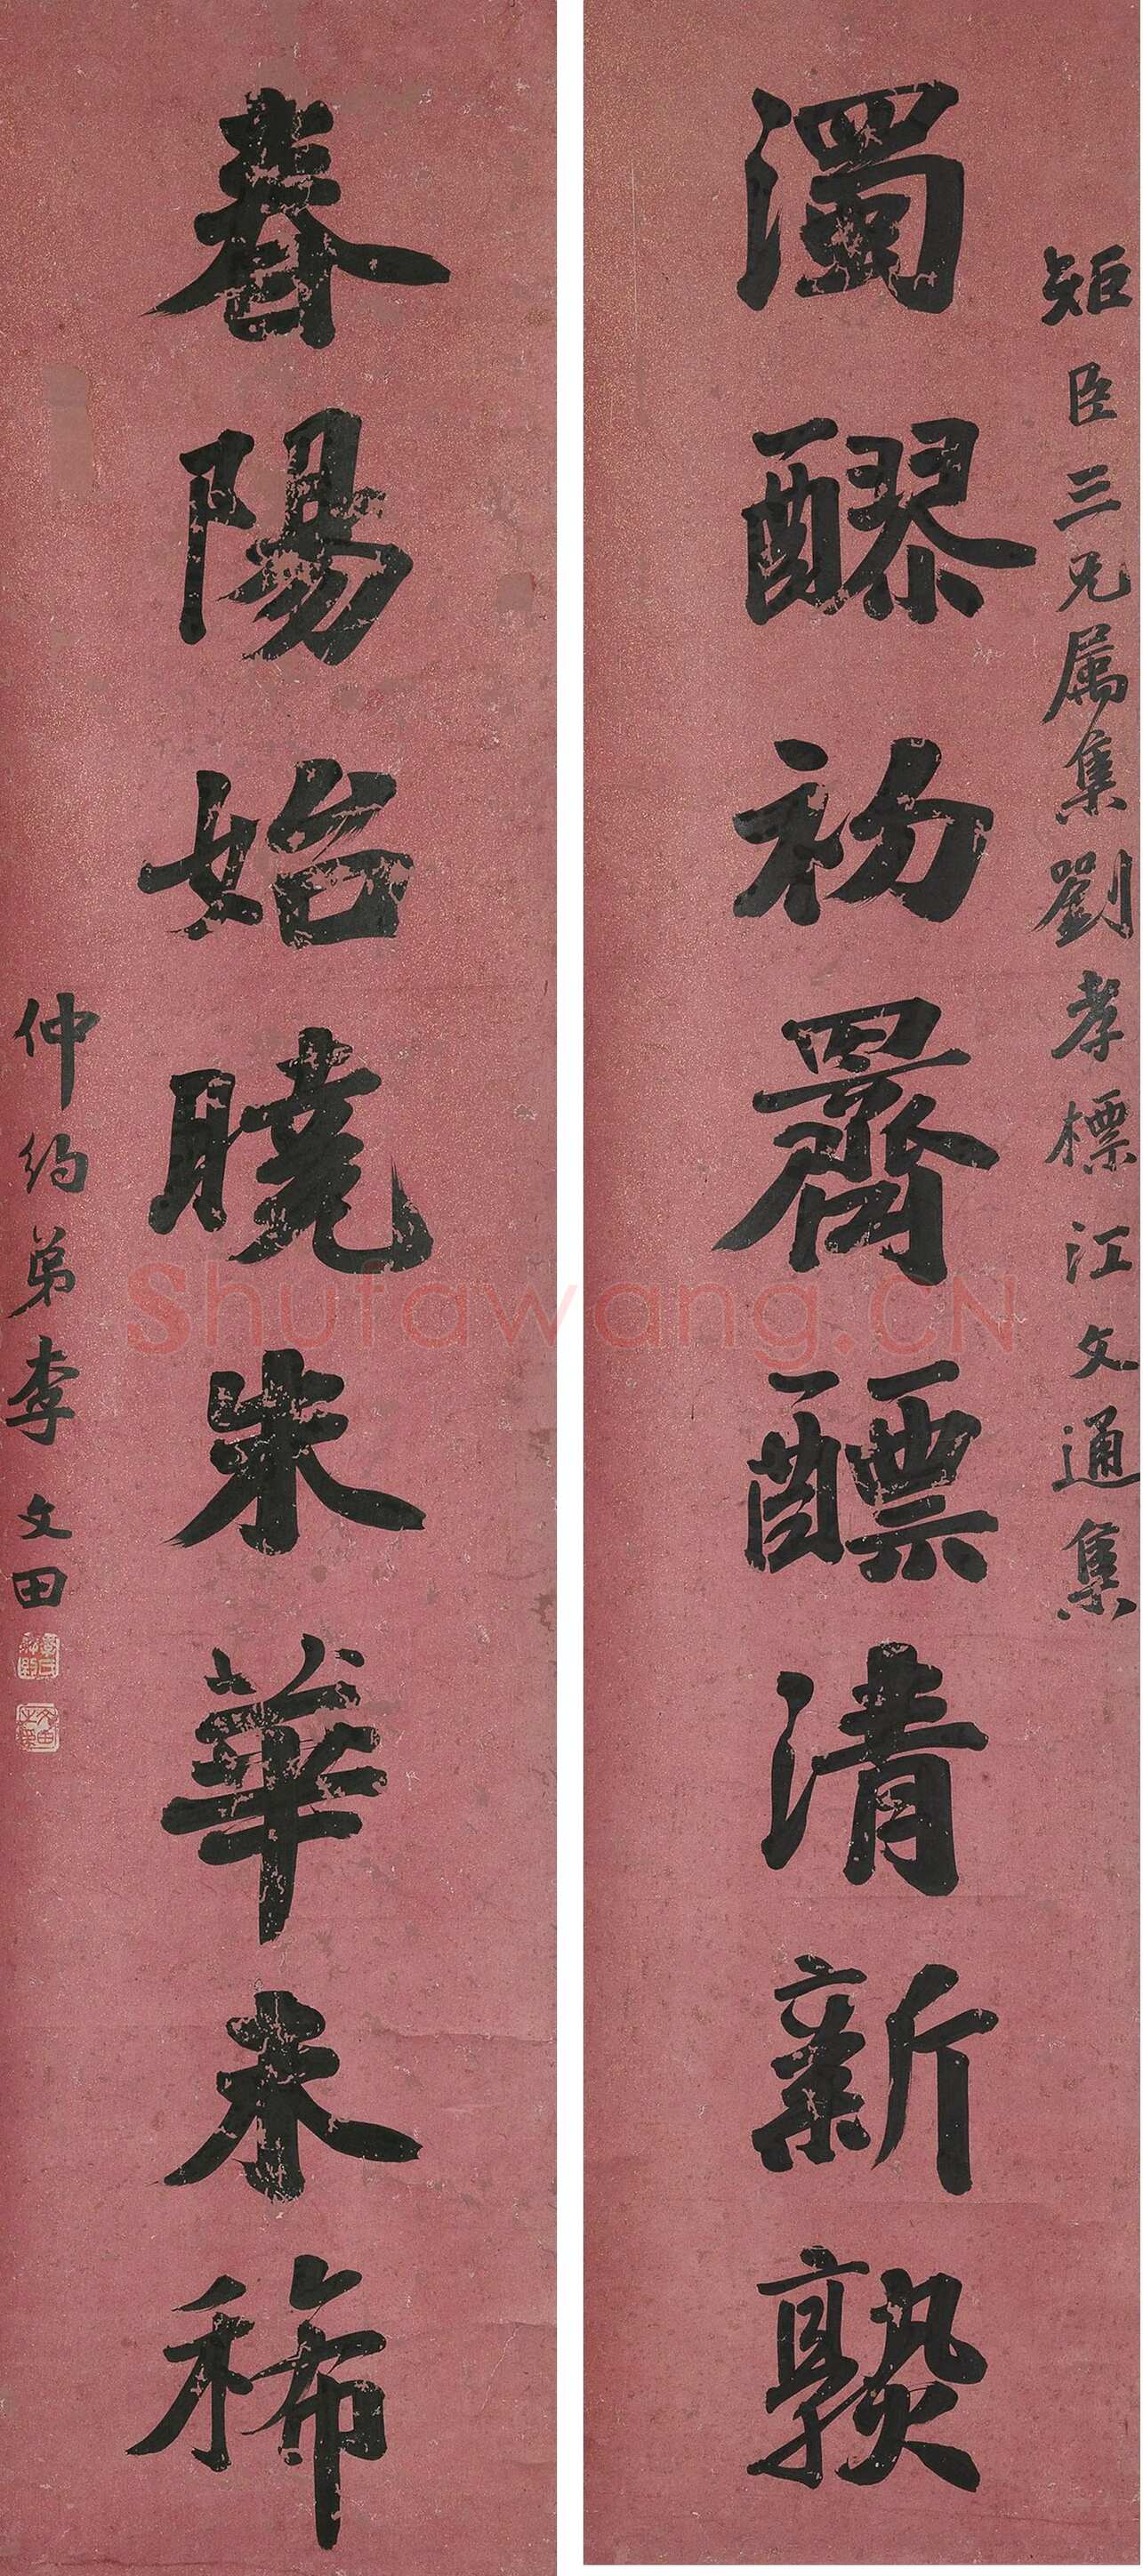 矩臣三兄属集劉孝標江文通集
濁醪初醥清新熟
春陽始曉朱華未稀
仲約弟李文田
Shufawang.CN